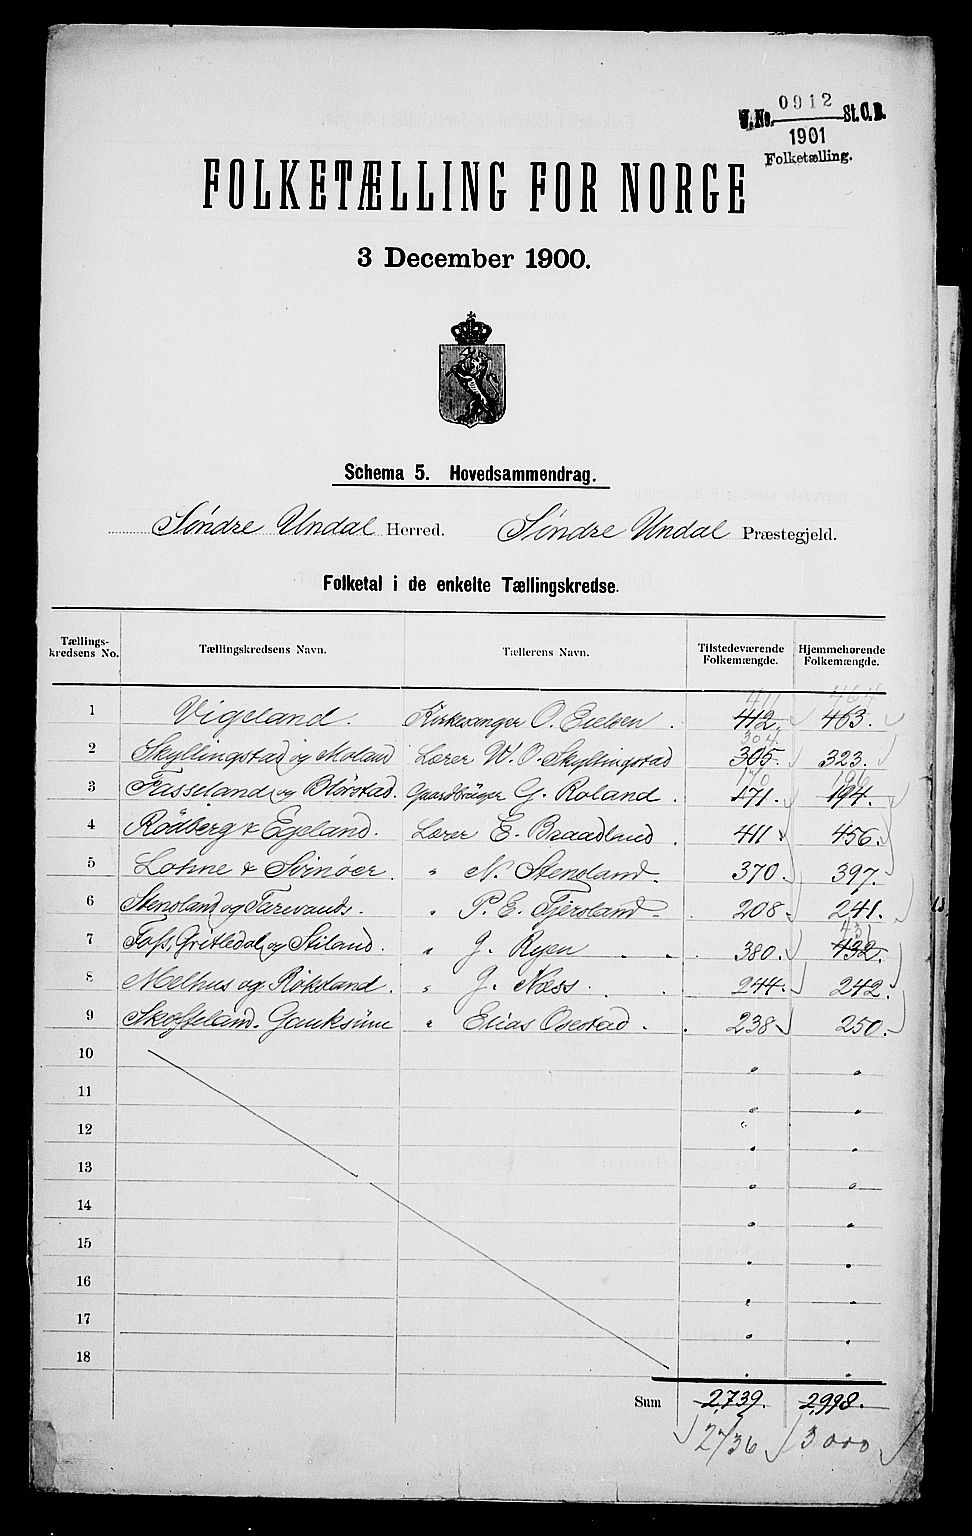 J.No. 0912 St.C.B.
1901
Folketælling.
FOLKETÆLLING FOR NORGE
3 December 1900.
Schema 5. Hovedsammendrag.
Søndre Undal Herred. Søndre Undal Præstegjeld.
Folketal i de enkelte Tællingskredse.
Tællings-kredsens No. Tællingskredsens Navn. Tællerens Navn. Tilstedeværende Folkemængde. Hjemmehørende Folkemængde.
411 464
1 Vigeland. Kirkesanger O. Eielsen. 412. 463.
304
2 Skyllingstad og Moland Lærer W. O. Skyllingstad 305. 323.
170 196
3 Fasseland og Blørstad. Gaardbruger G. Roland. 171. 194.
4 Rødberg & Egeland. Lærer E. Braadland. 411. 456.
5 Lohne & Svinøer. " N. Stensland. 370. 397.
6 Stensland og Tarevands. " P. E. Fjersland. 208. 241.
431
7 Foss, Gritledal og Stiland. " J. Ryen 380. 432.
8 Melhus og Røksland. " J. Næss. 244. 242.
9 Skoffeland. Gauksum " Elias Ovestad. 238. 250.
10
11
12
13
14
15
16
17
18
Sum 2,739. 2,998.
2736 3000